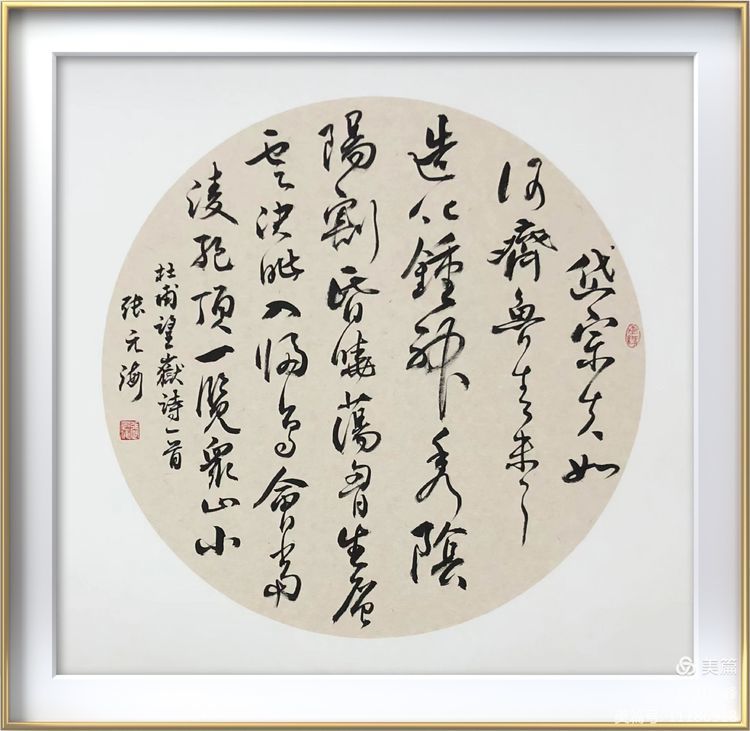 岱宗夫如
何齊魯青未了
造化鍾神秀陰
陽割昏曉蕩胷生層
雲決眥入歸鳥會當
淩絕頂一覽衆山小
杜甫望嶽詩一首
張元海
美篇